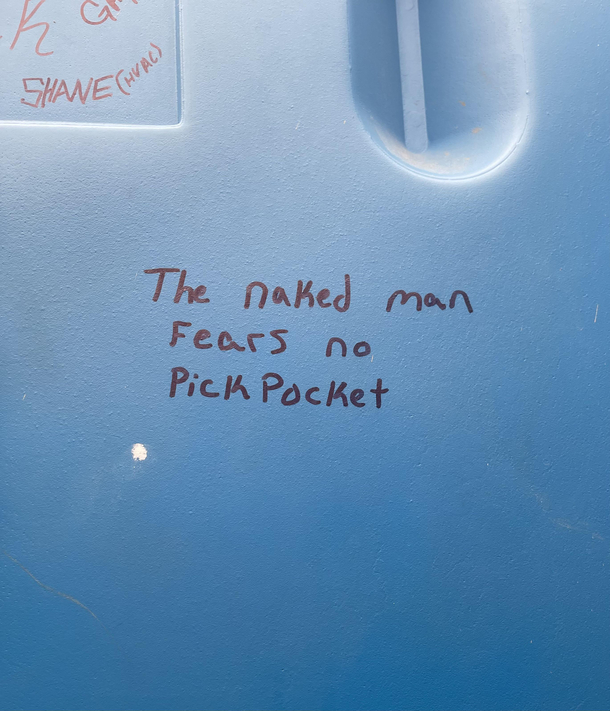 SHANE (HVAC)
The naked man
Fears no
PickPocket